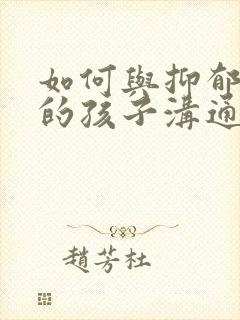 如何與抑郁
的孩子溝通
趙芳杜